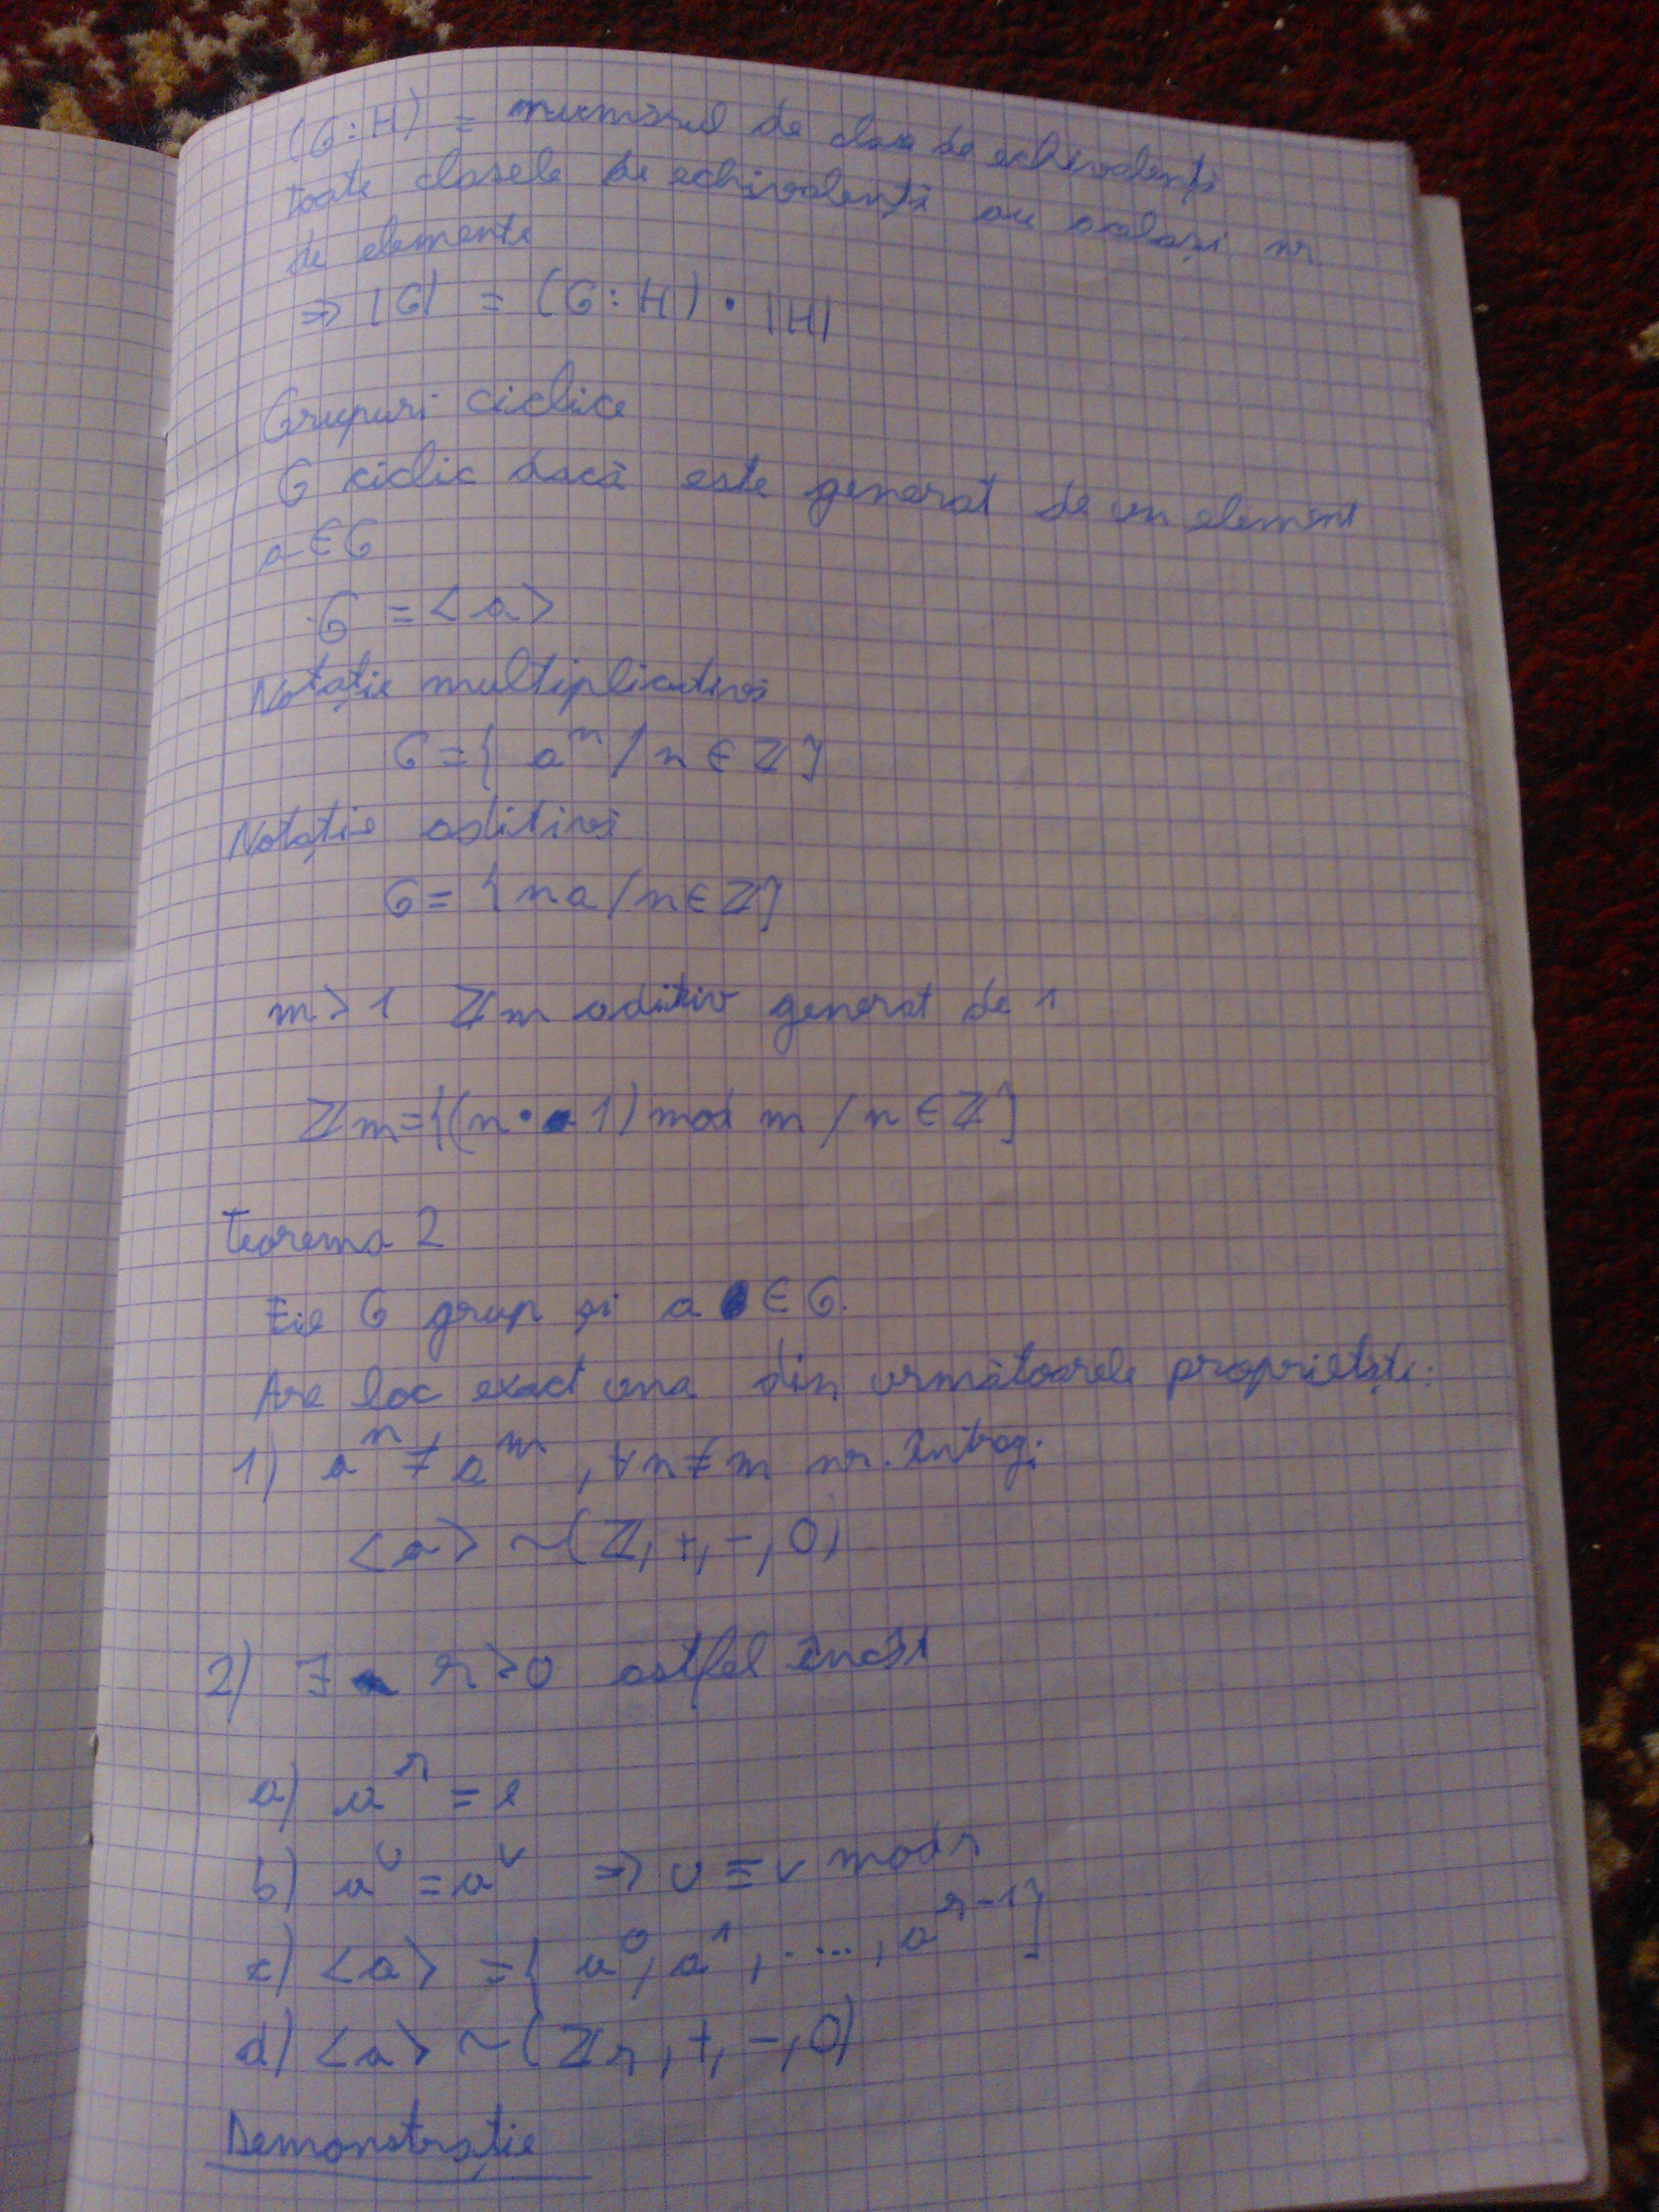 (G:H) = numărul de clase de echivalență
toate clasele de echivalență au același nr.
de elemente
=> |G| = (G:H) • |H|
Grupuri ciclice
G ciclic dacă este generat de un element
a ∈ G
G = <a>
Notație multiplicativă
G = { aⁿ / n ∈ ℤ }
Notație aditivă
G = { na / n ∈ ℤ }
m > 1 ℤm aditiv generat de 1
ℤm = {(n • 1) mod m / n ∈ ℤ}
Teorema 2
Fie G grup și a ∈ G.
Are loc exact una din următoarele proprietăți:
1) aⁿ ≠ aᵐ, ∀ n ≠ m nr. întregi
<a> ~ (ℤ, +, -, 0)
2) ∃ r > 0 astfel încât
a) aʳ = e
b) aᵘ = aᵛ => u ≡ v mod r
c) <a> = { a⁰, a¹, ...., aʳ⁻¹ }
d) <a> ~ (ℤr, +, -, 0)
Demonstrație